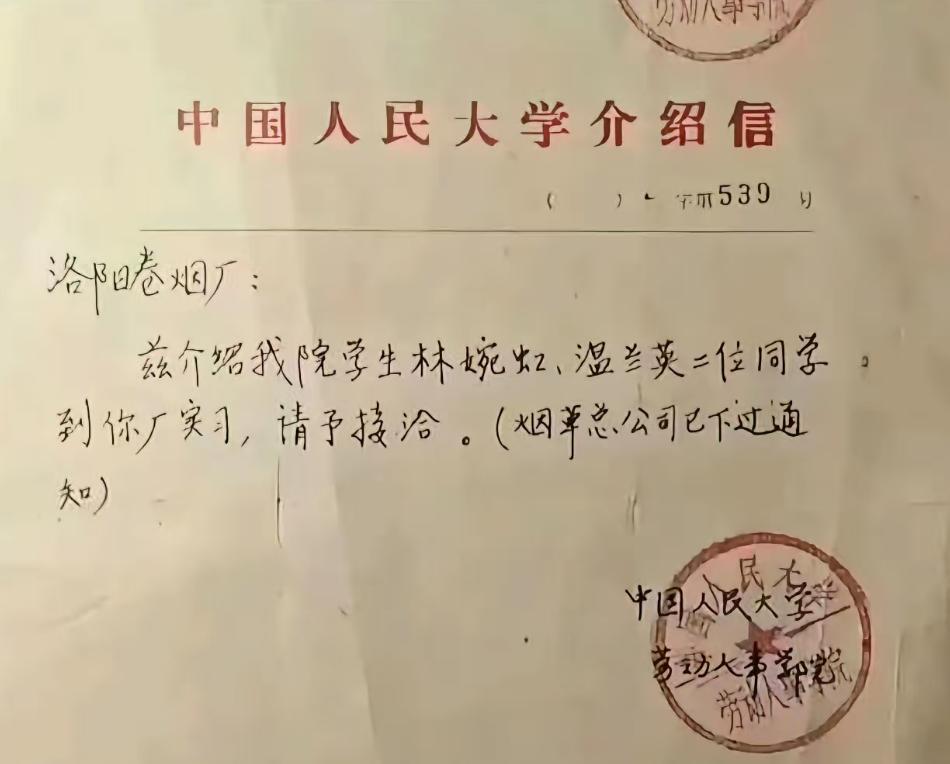 劳动人事学院
中国人民大学介绍信
( ) 字第539号
洛阳卷烟厂：
兹介绍我院学生林婉虹、温兰英二位同学
到你厂实习，请予接洽。（烟草总公司已下过通
知）
中国人民大学
劳动人事学院
劳动人事学院